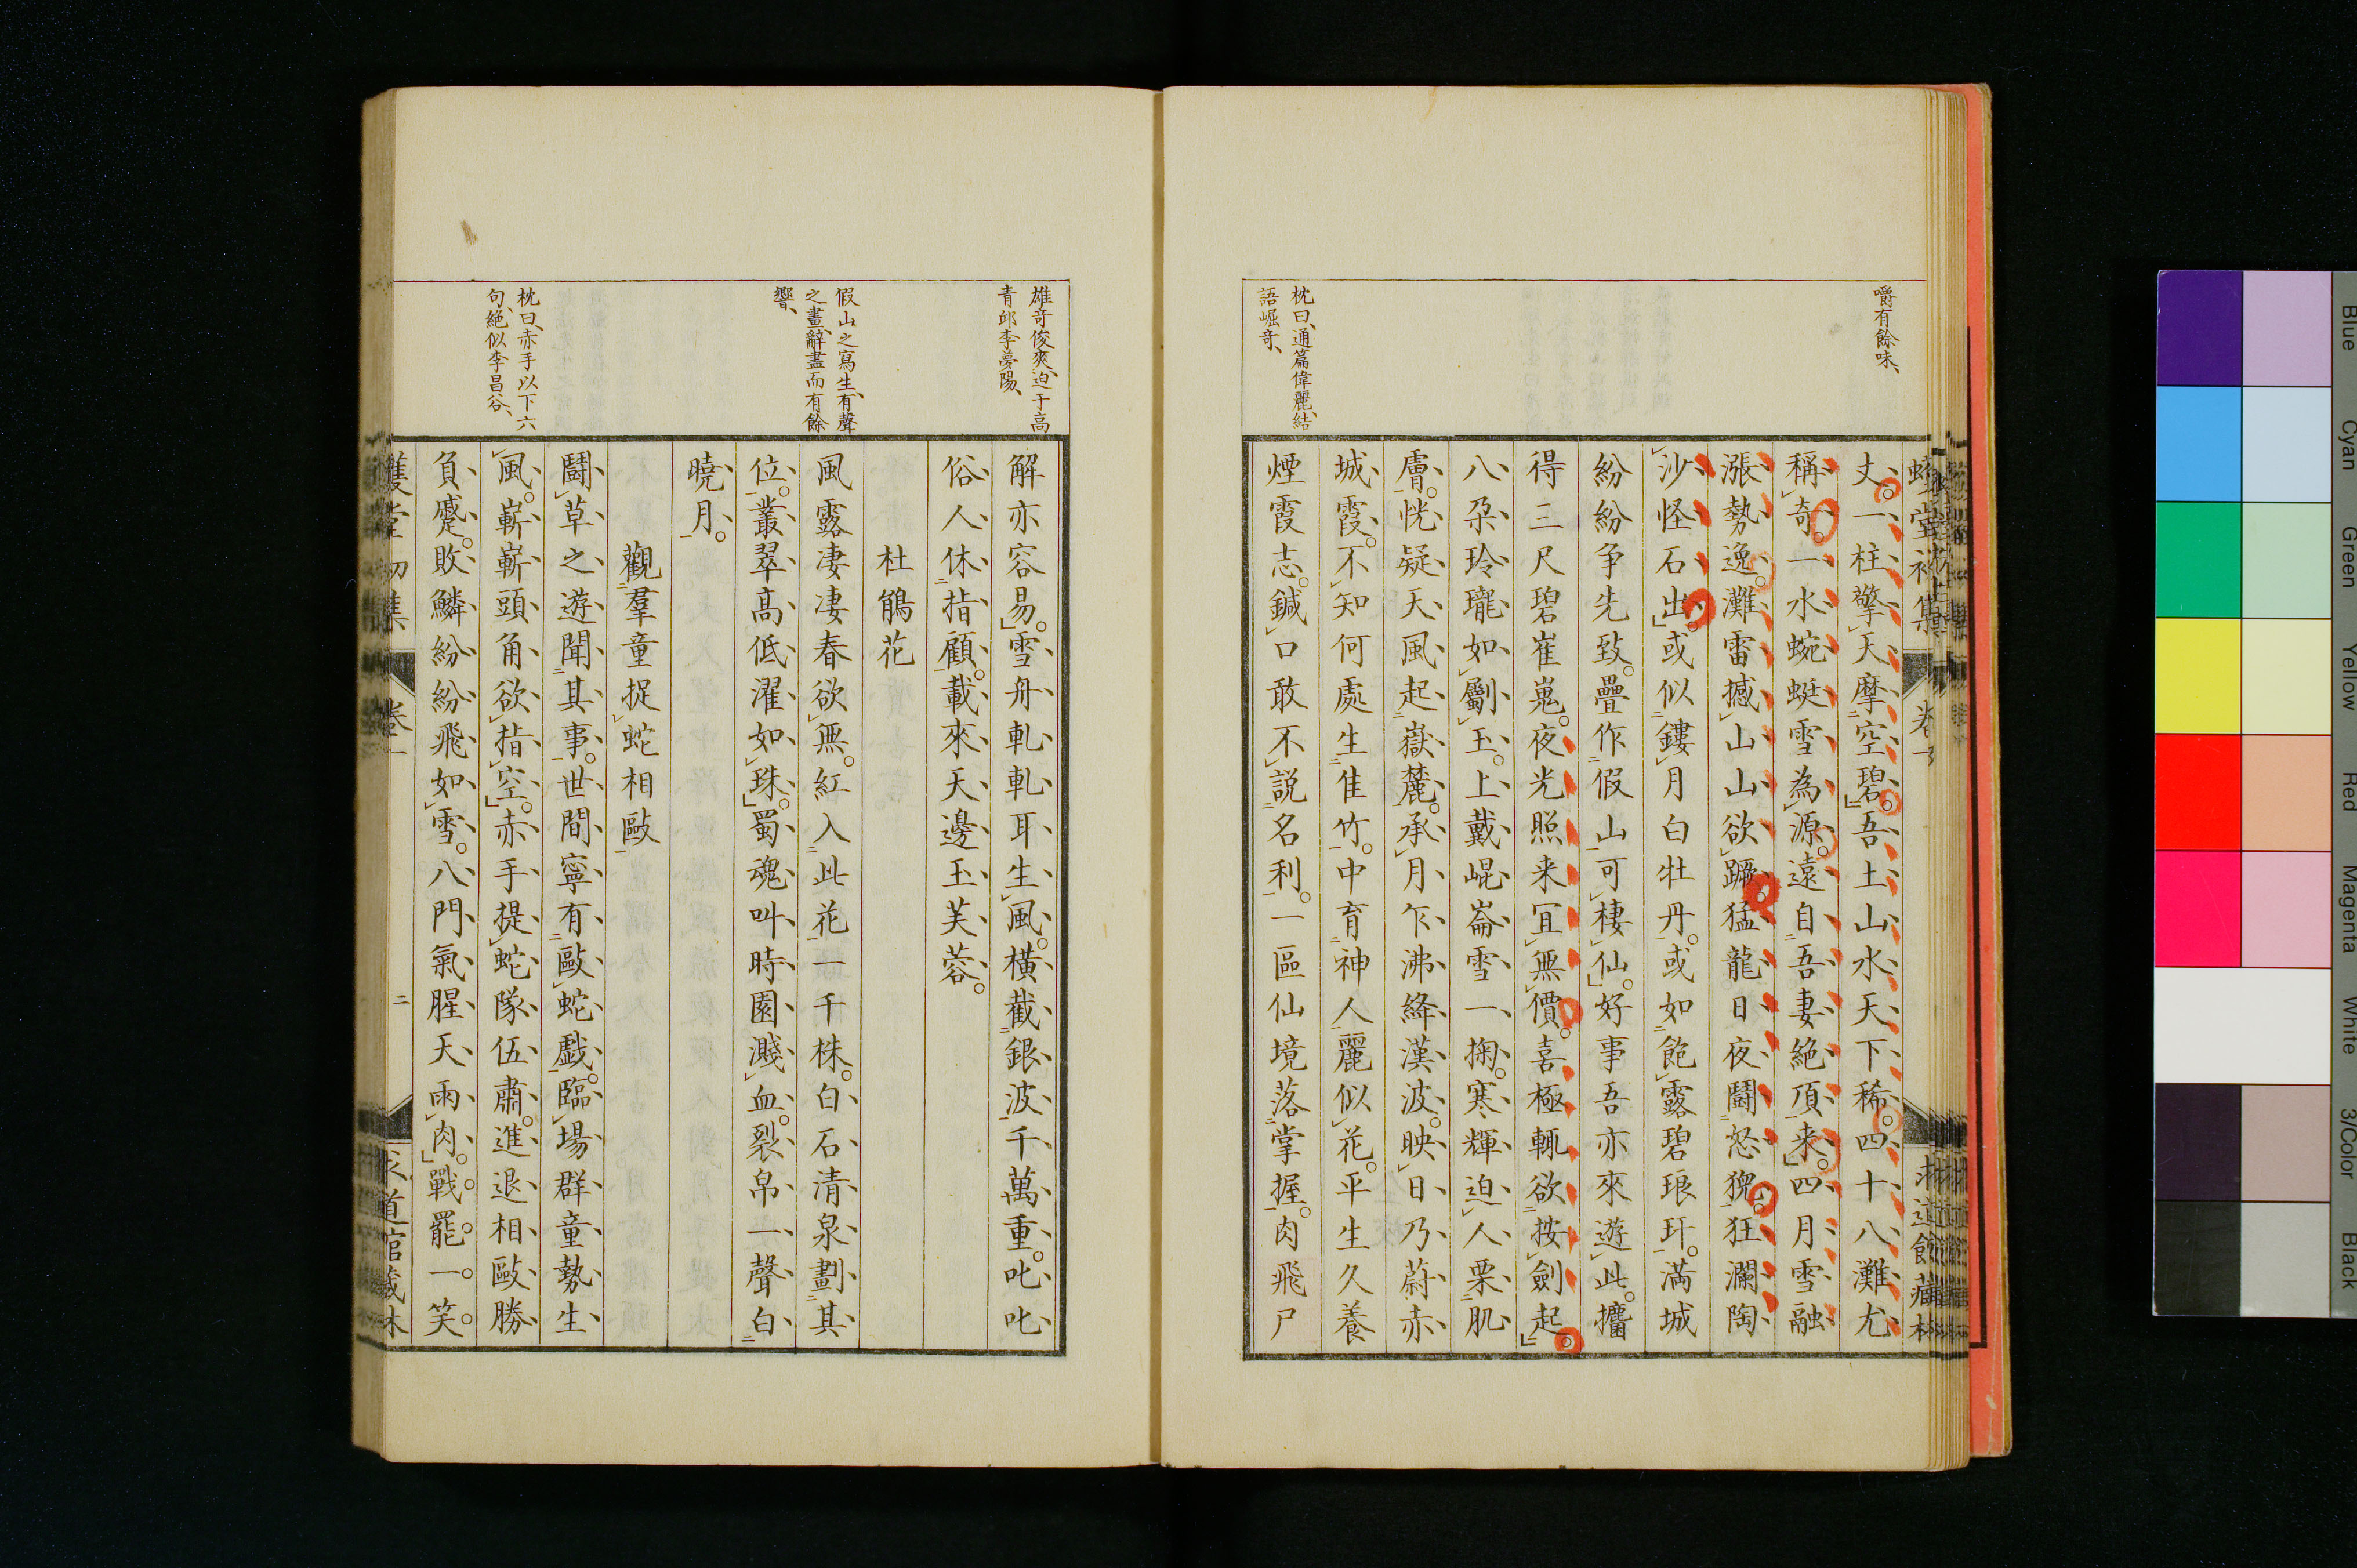 嚼有餘味、
丈。一柱擎天摩空碧。吾土山水天下稀。四十八灘尤
稱奇。一水蜿蜒雪為源。遠自吾妻絶頂来。四月雪融
漲勢逸。灘雷撼山山欲蹶。猛龍日夜鬪怒猊。狂瀾陶
沙怪石出。或似鏤月白牡丹。或如飽露碧琅玕。満城
紛紛争先致。疊作假山可棲仙。好事吾亦來遊此。攜
得三尺碧崔嵬。夜光照来冝無價。喜極輒欲按劍起。
八朶玲瓏如劚玉。上戴崐崙雪一掬。寒輝迫人栗肌
膚。恍疑天風起嶽麓。承月乍沸絳漢波。映日乃蔚赤
城霞。不知何處生隹竹。中育神人麗似花。平生久養
煙霞志。鍼口敢不説名利。一區仙境落掌握。肉飛尸
枕曰、通篇偉麗、結
語崛奇、
雄奇俊爽、迫于高
青邱李夢陽、
解亦容易。雪舟軋軋耳生風。橫截銀波千萬重。叱叱
俗人休指顧。載來天邊玉芙蓉。
杜鵑花
假山之寫生、有聲
之畫、辭盡而有餘
響、
風露凄凄春欲無。紅入此花一千株。白石清泉劃其
位。叢翠高低濯如珠。蜀魂叫時園濺血。裂帛一聲白
曉月。
觀羣童捉蛇相敺
鬪草之遊聞其事。世間寧有敺蛇戲。臨場群童勢生
枕曰、赤手以下六
句、絶似李昌谷、
風。嶄嶄頭角欲指空。赤手提蛇隊伍肅。進退相敺勝
負蹙。敗鱗紛紛飛如雪。八門氣腥天雨肉。戰罷一笑
卷一
二